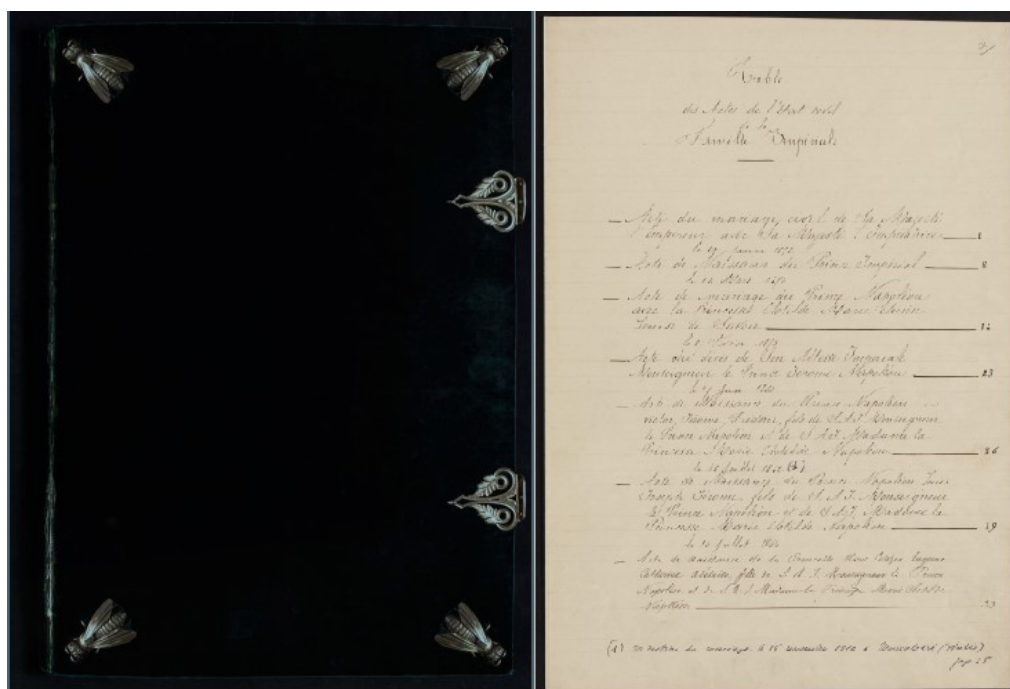 Table
des Actes de l'Etat civil
de la
Famille Impériale
— Acte du mariage civil de Sa Majesté
l'Empereur avec Sa Majesté l'Impératrice — 1
le Janvier
— Acte de Naissance du Prince Impérial — 8
le Mars
— Acte de mariage du Prince Napoléon
avec la Princesse Clotilde Marie
de Savoie — 14
le
— Acte de décès de Son Altesse Impériale
Monseigneur le Prince Jérôme Napoléon — 23
le Juin
— Acte de Naissance du Prince Napoléon
Victor, Jérôme, Frédéric, fils de S.A.I. Monseigneur
le Prince Napoléon et de S.A.I. Madame la
Princesse Marie Clotilde Napoléon — 26
le 18 Juillet 1862 (1)
— Acte de Naissance du Prince Napoléon Louis
Joseph Jérôme, fils de S.A.I. Monseigneur
le Prince Napoléon et de S.A.I. Madame la
Princesse Marie Clotilde Napoléon —
le Juillet 1864
— Acte de naissance de la Princesse Marie Laetitia Eugénie
Catherine Adélaïde, fille de S.A.I. Monseigneur le Prince
Napoléon et de S.A.I. Madame la Princesse Marie Clotilde
Napoléon —
(1) mention du mariage le novembre 1910 à Moncalieri (Italie)
page